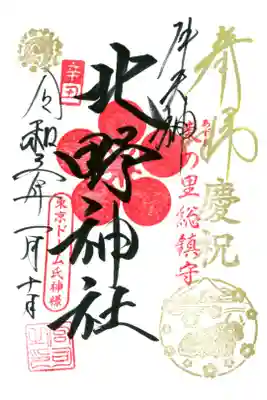 奉拝 慶祝
の里総鎮守
牛天神
北野神社
辛丑
東京ドーム氏神様
令和三年一月十日